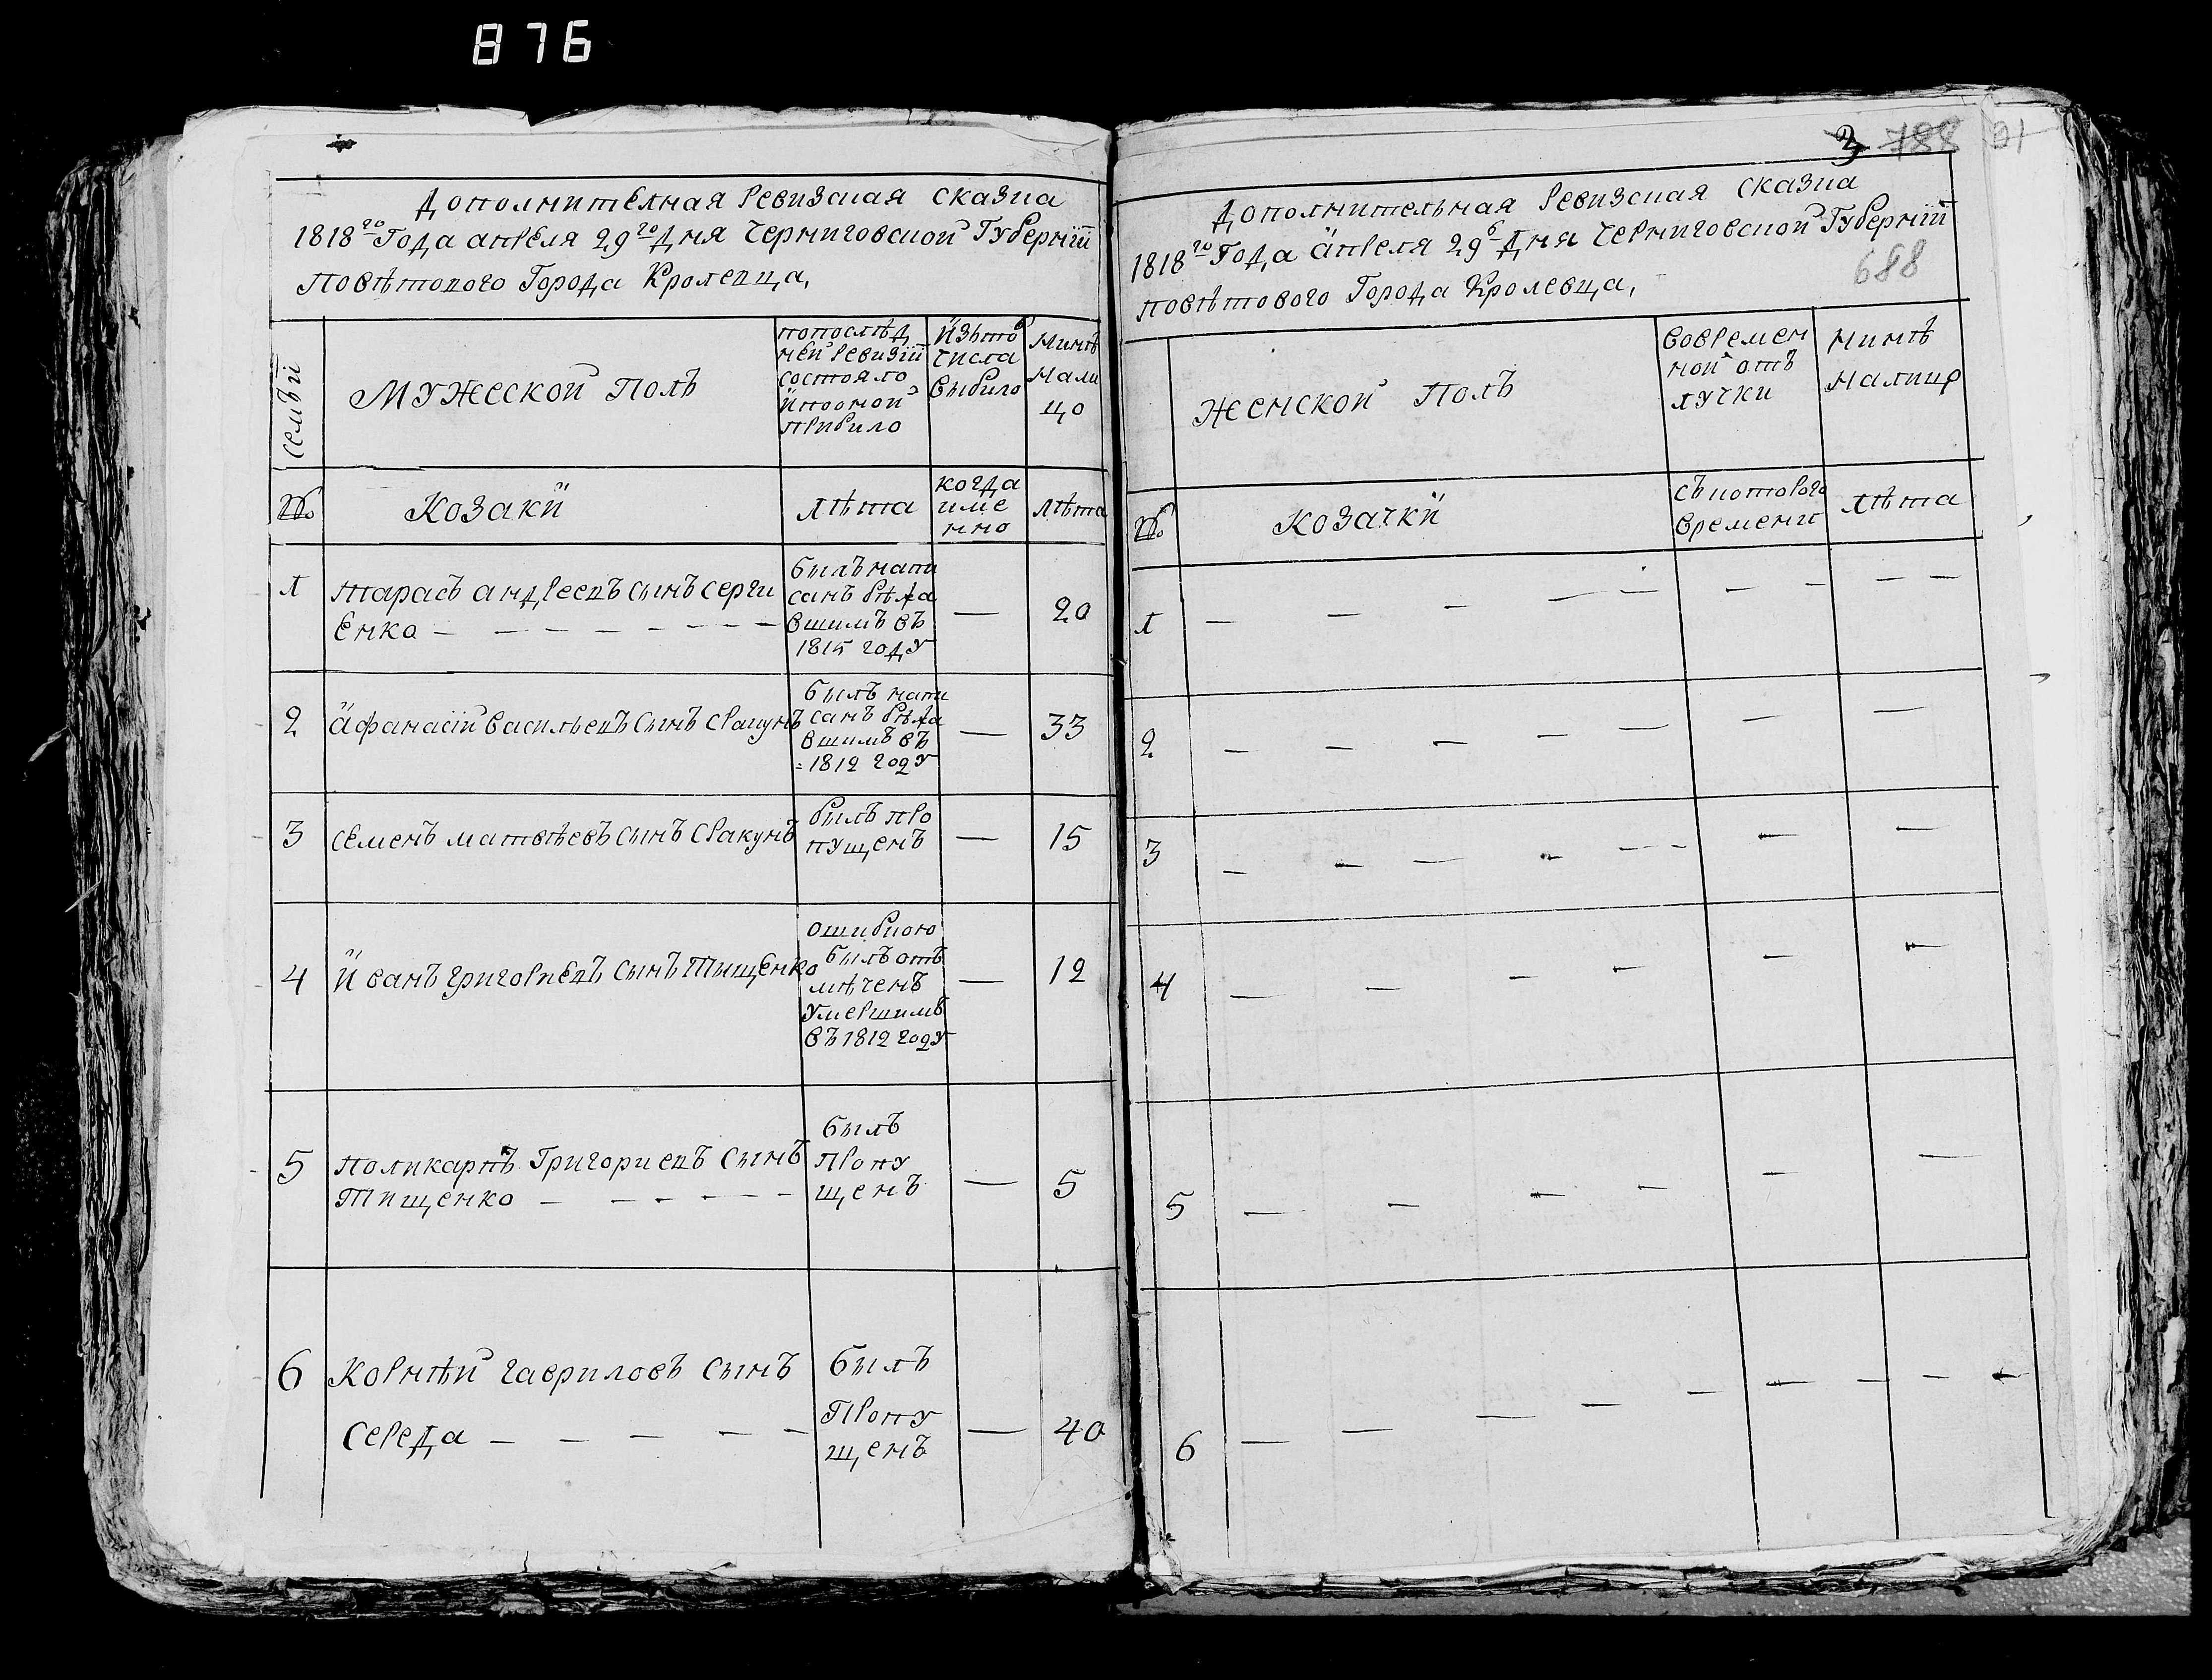 876
Дополнителная Ревизская сказка
1818го Года апреля 29го Дня Черниговской Губернїи
Повѣтового Города Кролевца,
семьи
Мужеской Полъ
попослѣд
ней ревизїи
состояло
ипооной
прибило
Изъто
числа
выбило
Нинѣ
Нали
цо
№
Козаки
лѣта
когда
име
нно
лѣта
1
Тарасъ андреевъ сынъ серги
Енко
былъ напи
санъ бѣжа
вшимъ въ
1815 году
—
20
2
Афанасїй Васильевъ Сынъ Сракунъ
былъ напи
санъ бѣжа
вшимъ въ
1812 году
—
33
3
Семенъ матвѣевъ Сынъ Сракунъ
билъ про
пущенъ
—
15
4
Иванъ григориевъ Сынъ Тыщенко
ошибкою
былъ отъ
мѣченъ
умершимъ
въ 1812 году
—
12
5
Поликарпъ Григориевъ Сынъ
Тищенко
былъ
Пропу
щенъ
—
5
6
Корнѣй гавриловъ Сынъ
Середа
былъ
Пропу
щенъ
—
40
3 788 91
Дополнительная Ревизская сказка
1818го Года апреля 29 Дня Черниговской Губернїи
повѣтового Города Кролевца,
688
Женской Полъ
Вовремен
ной отъ
лучки
Нинѣ
Налицо
№
Козачки
Съкоторого
Времени
лѣта
1
2
3
4
5
6